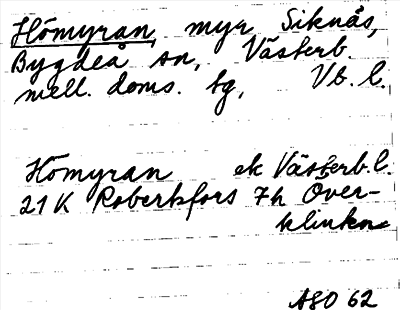 Hömyran, myr Siknäs,
Bygdeå sn, Västerb.
mell. doms. tg, Vb. l.
Hömyran ek Västerb. l.
21 K Robertsfors 7h Över-
klinten
ASO 62